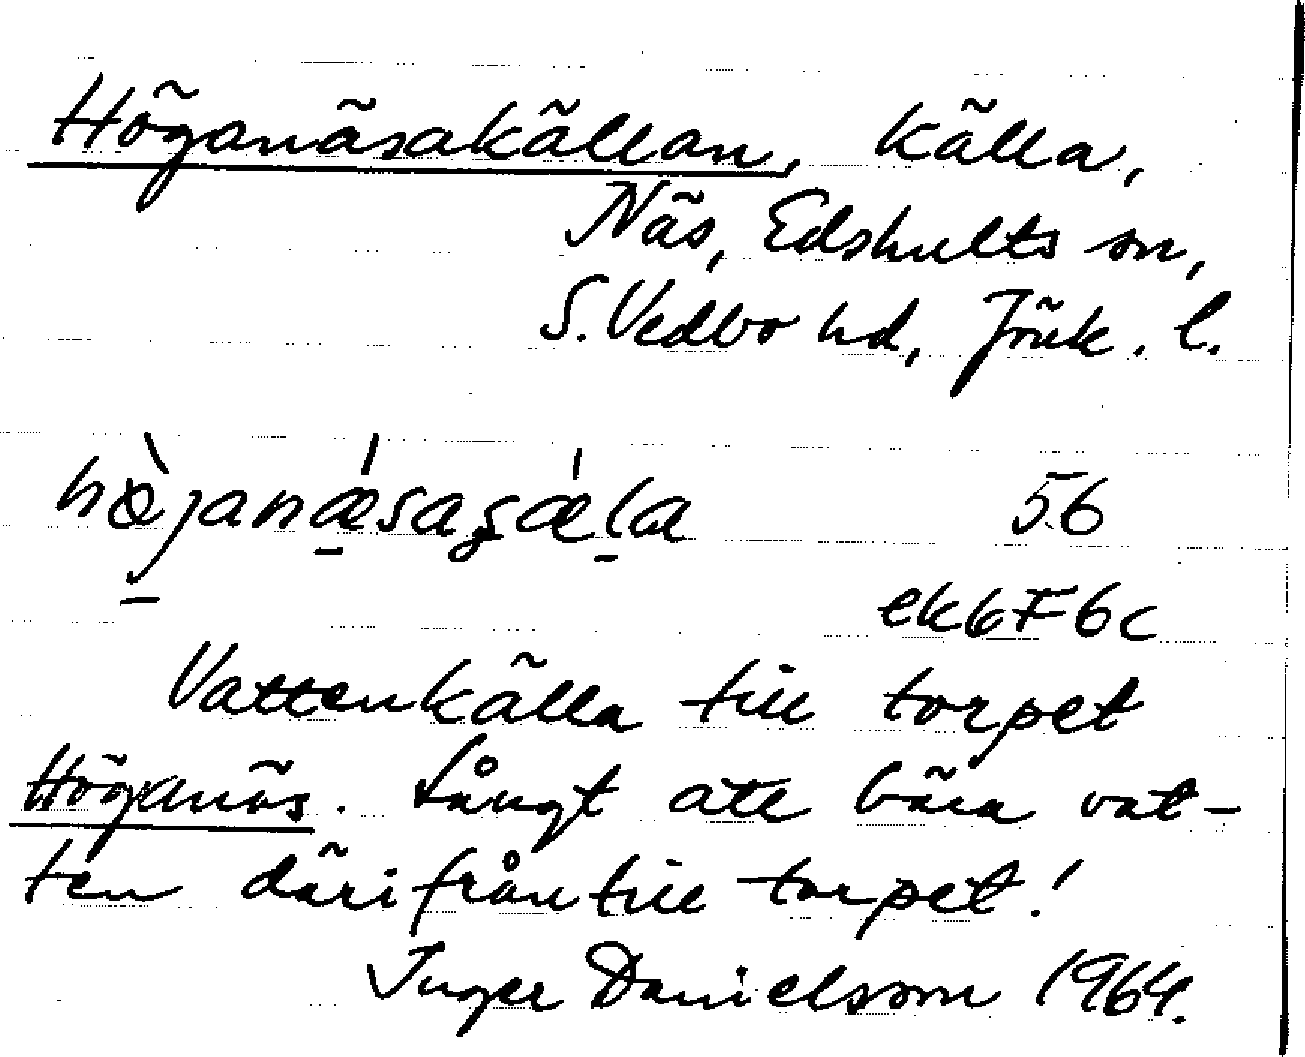 Höganäsakällan, källa,
Näs, Edshults sn,
S. Vedbo hd, Jönk. l.
hæ̀janǽsagǽla 56
ek6F6c
Vattenkälla till torpet
Höganäs. Långt att bära vat-
ten därifrån till torpet!
Inger Danielsson 1964.